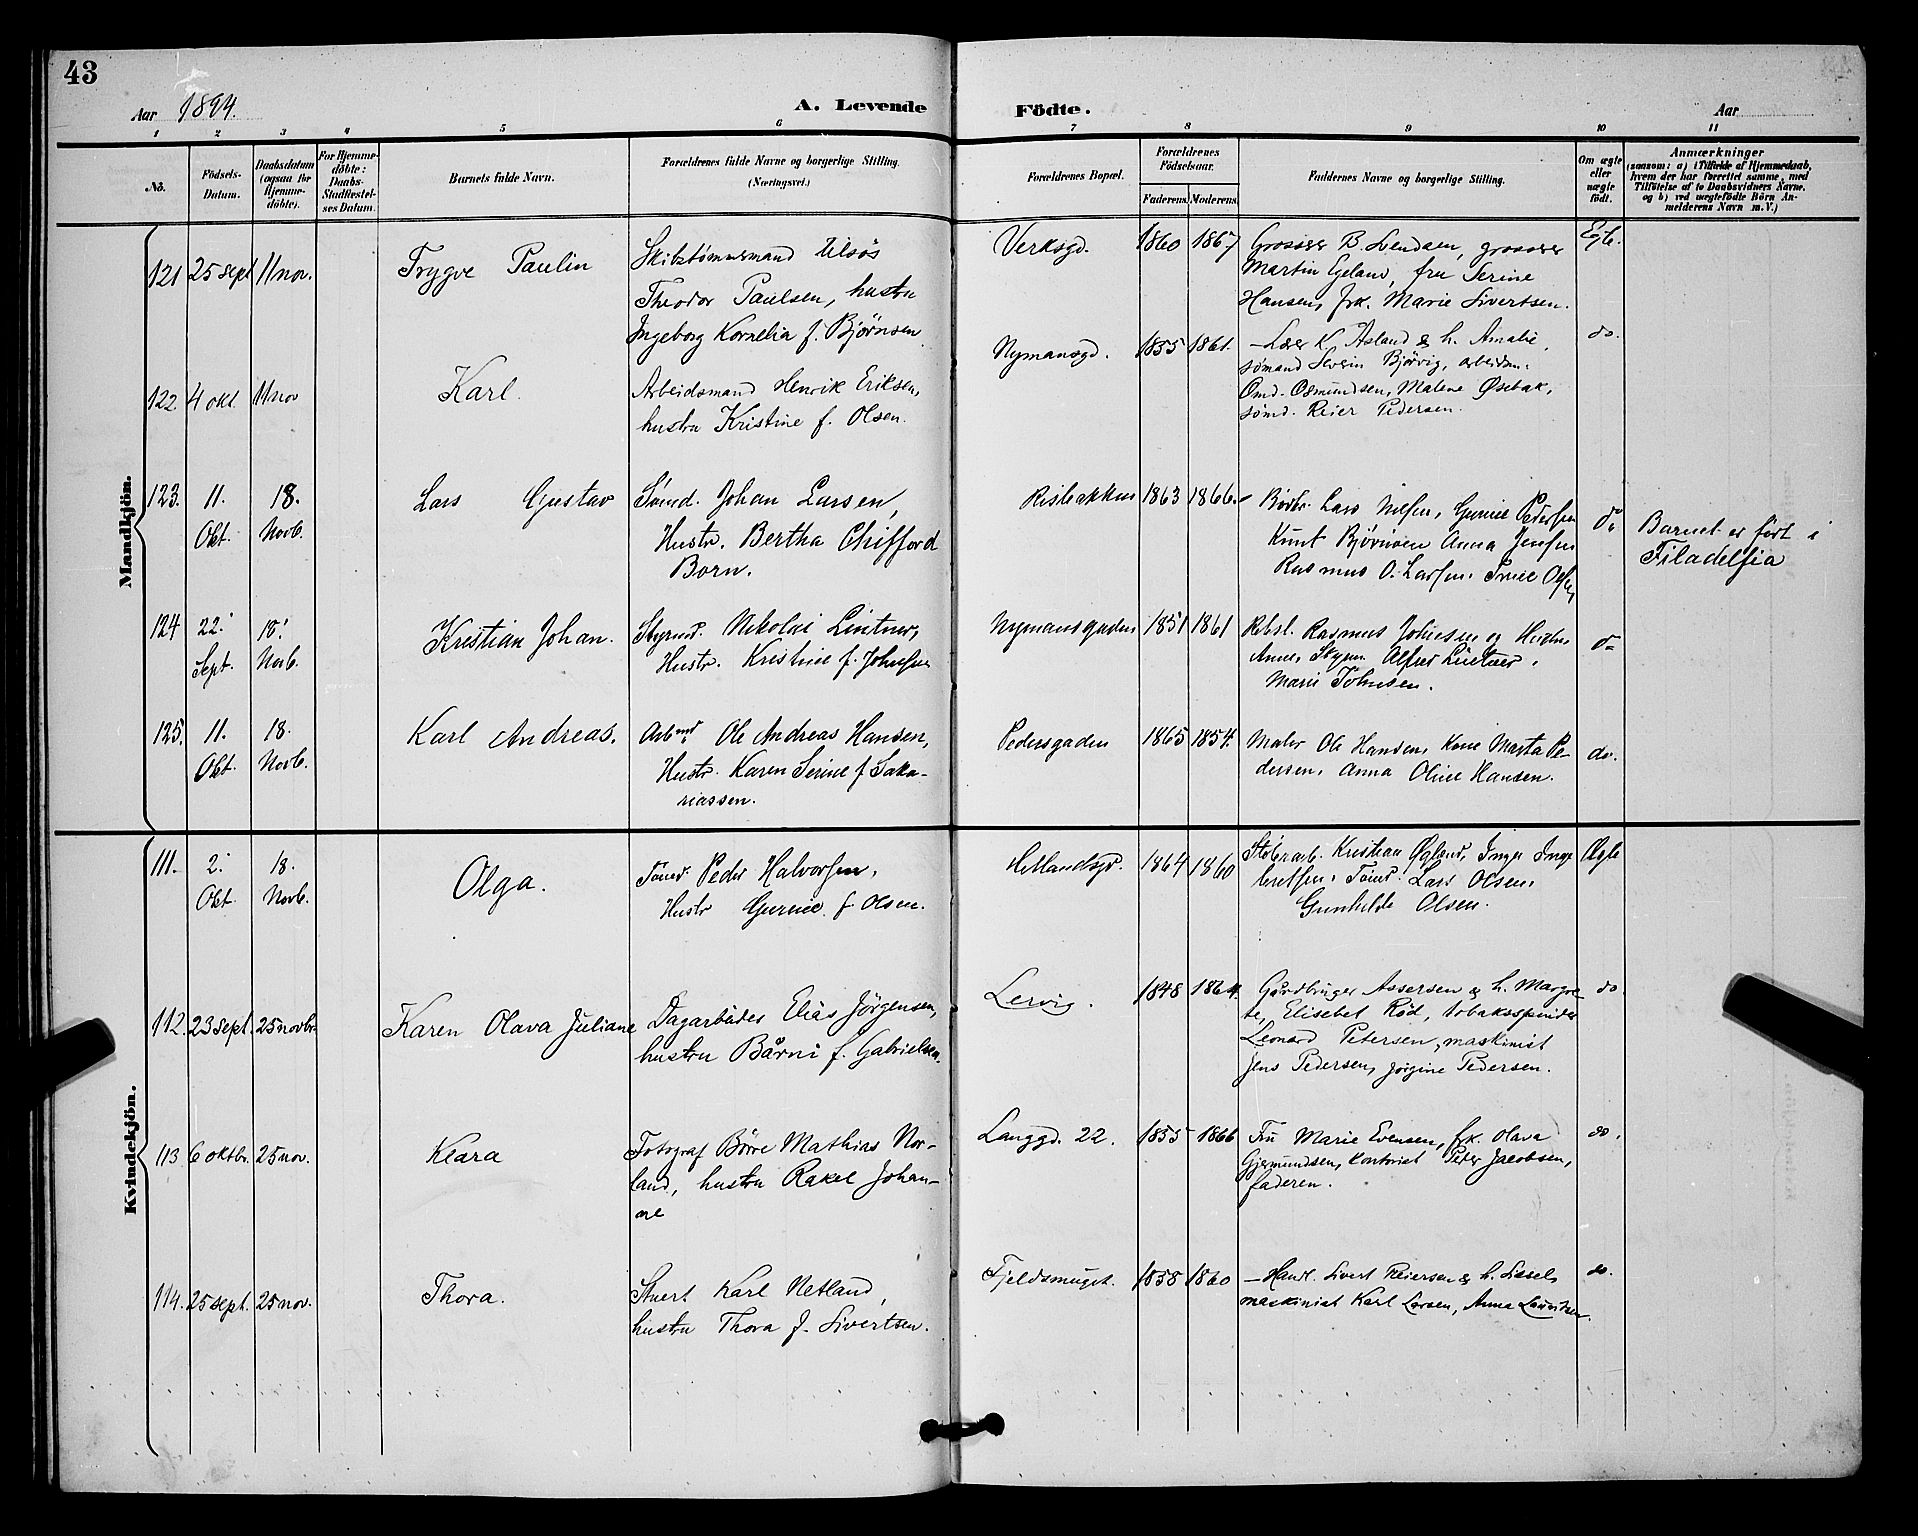 43
Aar 1894.
A. Levende Födte.
Aar
1 2 3 4 5 6 7 8 9 10 11
No.
Födsels-
Datum.
Daabsdatum
(ogsaa for
Hjemme-
döbte).
For Hjemme-
döbte:
Daabs-
Stadfæstel-
ses Datum.
Barnets fulde Navn.
Forældrenes fulde Navne og borgerlige Stilling.
(Næringsvei.)
Forældrenes Bopæl.
Forældrenes
Födselsaar.
Faderens Moderens
Faddernes Navne og borgerlige Stilling.
Om ægte
eller
uægte
födt.
Anmærkninger
(saasom: a) i Tilfælde af Hjemmedaab,
hvem der har forrettet samme, med
Tilföielse af to Daabsvidners Navne.
og b) ved uægtefödte Börn An-
melderens Navn m. V.)
Mandkjön.
121 25 sept 11 nov. Trygve Paulin
Skibstømmermand tilsøs
Theodor Paulsen, hustru
Ingeborg Kornelia f. Bjørnsen
Verksgd. 1860 1867
Grosserer B. Svendsen, grosserer
Martin Egeland, fru Serine
Hansen, frk. Marie Sivertsen.
Egte.
122. 4 okt. 11 nov Karl.
Arbeidsmand Henrik Eriksen,
hustru Kristine f. Olsen.
Nymansgd. 1855 1861.
Lærer K. Asland & h. Amalie,
sømand Severin Bjørvig, arbeidsm.
Omd. Osmundsen, Malene Østbak,
sømd. Reier Pedersen.
do.
123. 11. Okt. 18. Novb. Lars Gustav
Sömd. Johan Larsen,
Hustr. Bertha Chifford
Born.
Risbakken 1863 1866.
Lars Nilsen, Gurine Pedersen
Knut Bjørnsen Anna Jensen
Rasmus O. Larsen,
do
Barnet er født i
Filadelfia
124 22. Sept. 18. Novb. Kristian Johan.
Styrmd. Nikolai Lintner,
Hustr. Kristine f. Johnsen
Nymansgaden 1851 1861
Rebsl. Rasmus Johnsen og Hustru
Anne, Styrm. Alfred Lintner,
Marie Johnsen.
do
125. 11. Okt. 18. Novb. Karl Andreas.
Arbmd. Ole Andreas Hansen,
Hustr. Karen Serine f Saka-
riassen.
Pedersgaden 1865 1854.
Maler Ole Hansen, Kone Marta Pe-
dersen, Anna Oline Hansen.
do.
Kvindekjön.
111. 2. Okt. 18. Novb. Olga.
Tömd. Peder Halvorsen,
Hustr Gurine f Olsen.
Hetlandsgd. 1864 1860
Støberarb. Kristian Øgland, Inger Inge
bretsen, Tömd. Lars Olsen,
Gunhilde Olsen.
Ægte
112. 23 sept. 25 novbr. Karen Olava Juliane
Dagarbeider Elias Jörgensen,
hustru Bårni f. Gabrielsen.
Lervig. 1848 1864.
Gårdbruger Assersen & h. Margre
te, Elisebet Röd, tobaksspinder
Leonard Petersen, maskinist
Jens Pedersen, Jörgine Pedersen.
do.
113 6 oktbr. 25 nov. Klara
Fotograf Börre Mathias Nor-
land, hustru Rakel Johan-
ne
Langgd. 22. 1855 1866
Fru Marie Evensen, frk. Olava
Gjermundsen, kontorist Peder Jacobsen,
faderen.
do.
114. 25 sept. 25 nov. Thora.
Stuert Karl Netland,
hustru Thora f. Sivertsen.
Fjeldsmuget. 1858 1860
Handl. Sivert Reiersen & h. Sissel,
maskinist Karl Larsen, Anna Lauritsen.
do.